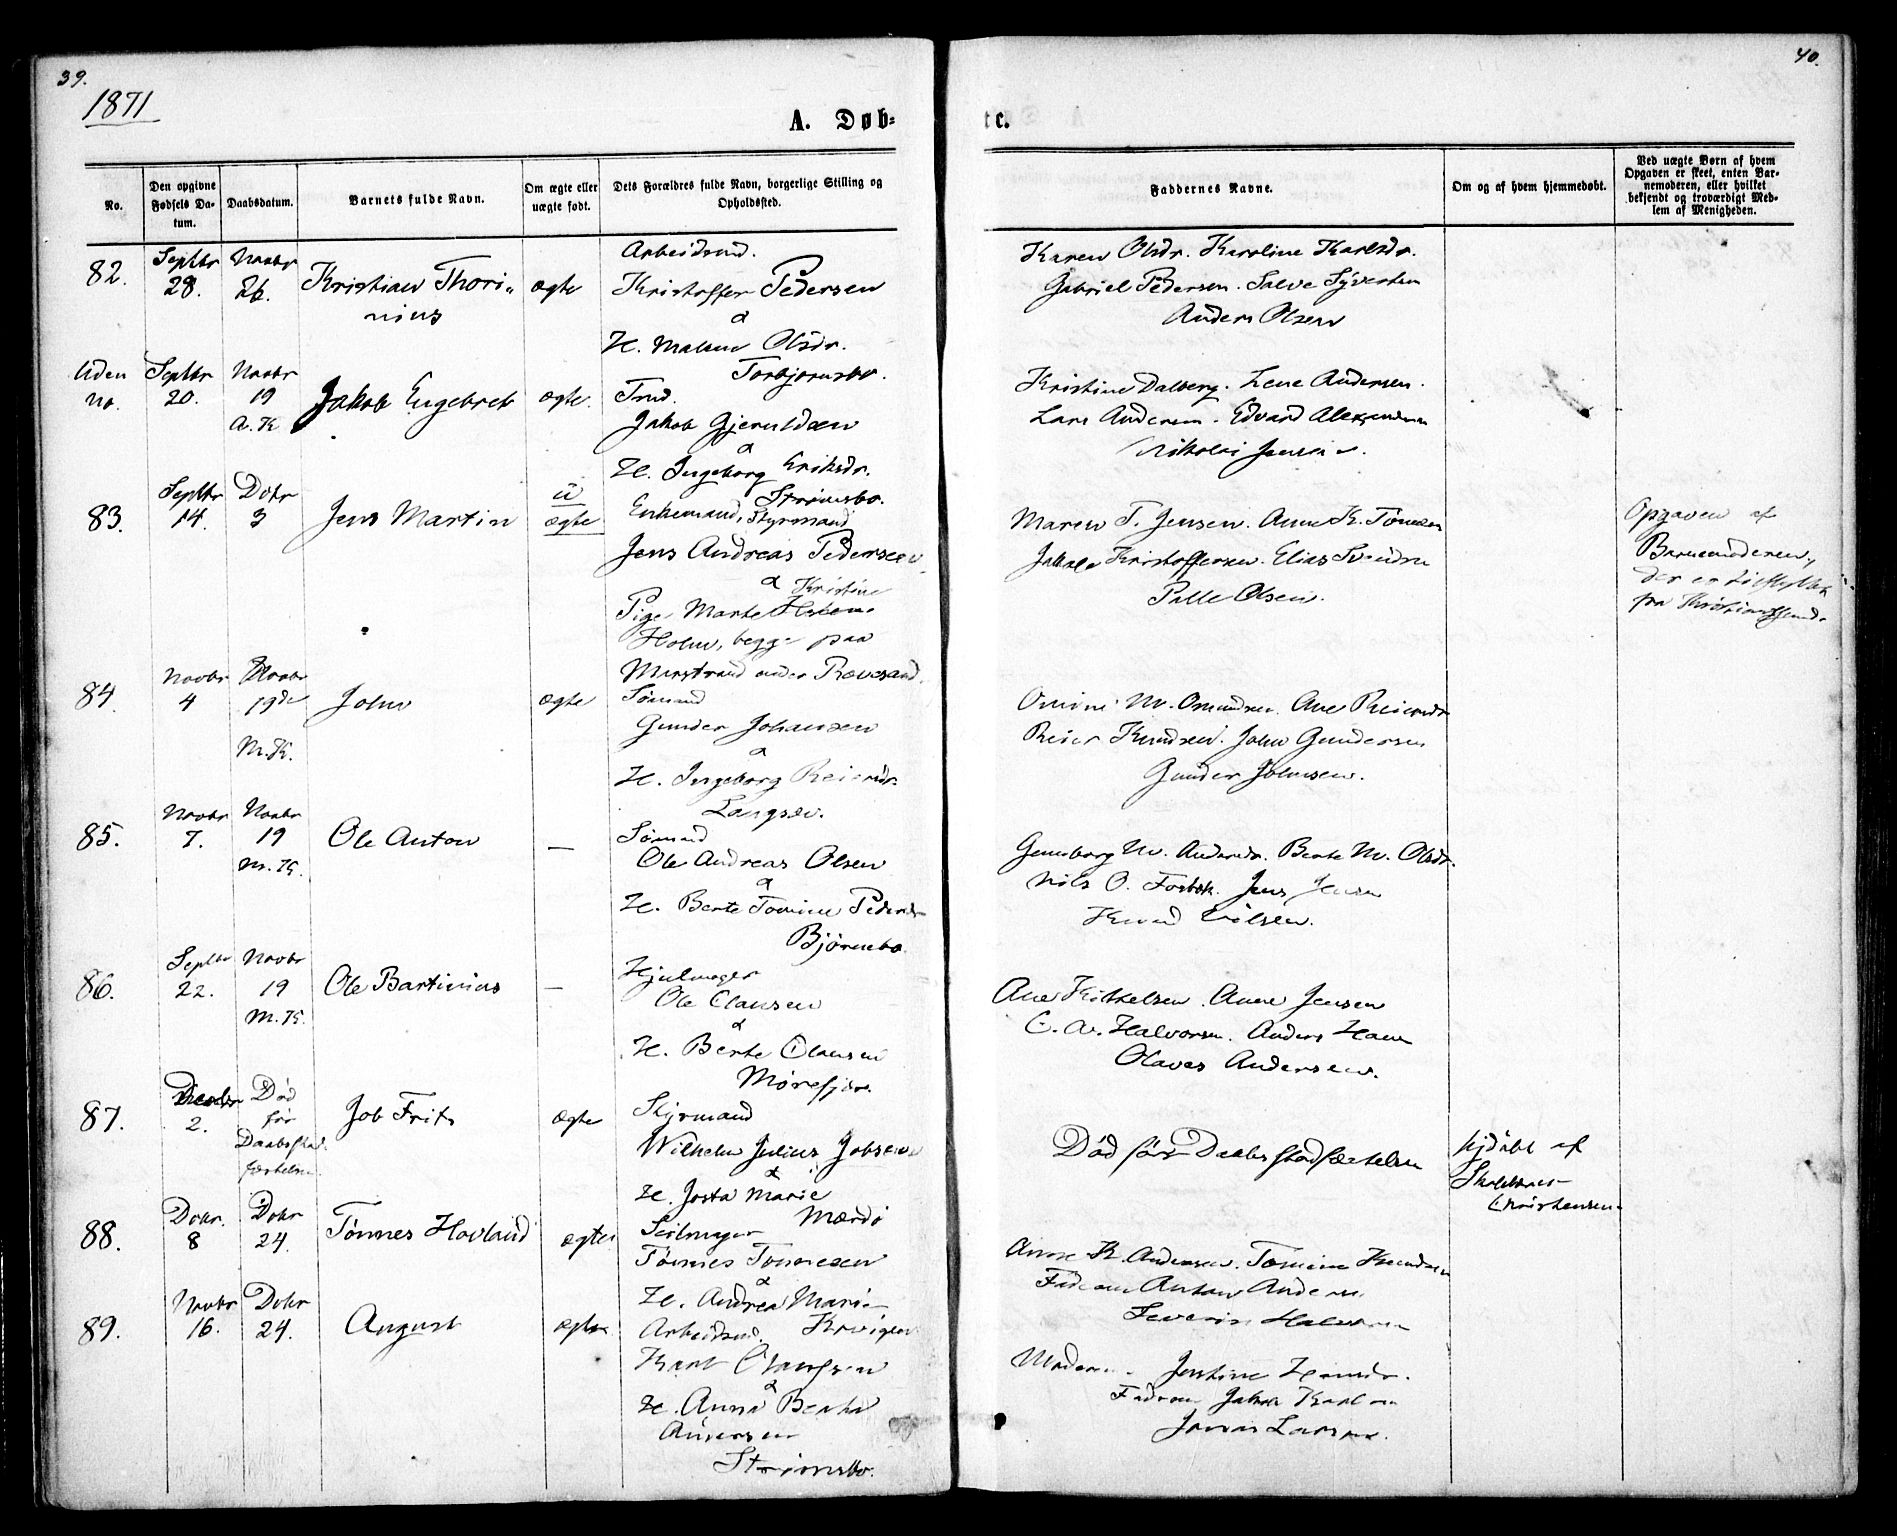 39.
40.
1871
A. Døb-
te.
No.
Den opgivne Fødsels Datum.
Daabsdatum.
Barnets fulde Navn.
Om ægte eller uægte født.
Dets Forældres fulde Navn, borgerlige Stilling og Opholdssted.
Faddernes Navne.
Om og af hvem hjemmedøbt.
Ved uægte Børn af hvem Opgaven er skeet, enten Barnemoderen, eller hvilket bekjendt og troværdigt Medlem af Menigheden.
82. Septbr 28. Novbr 26. Kristian Thorinius ægte
Arbeidsmd.
Kristoffer Pedersen
&
H. Malene Olsdr.
Torbjørnsbo.
Karen Olsdr. Karoline Karlsdr.
Gabriel Pedersen. Salve Syvertsen
Anders Olsen
Uden no. Septbr 20. Novbr 19 A.K Jakob Engebret ægte.
Tmd.
Jakob Gjeruldsen
&
H. Ingeborg Eriksdr.
Strømsbo.
Kristine Dalberg. Lene Andersen.
Lars Andersen. Edvard Alexandersen
Nikolai Jensen.
83. Septbr 14. Dcbr 3 Jens Martin u ægte
Enkemand, Styrmand
Jens Andreas Pedersen
& Kristine
Pige Marte
Holm, begge paa
Merstrand under Revesand.
Maren T. Jensen. Anne K. Tønnesen
Jakob Kristoffersen. Elias Svendsen
Palle Olsen.
Opgaven af
Barnemoderen,
der er tilflyttet
fra Kristianssund.
84. Novbr 4 Novbr 19de M.K. John ægte
Sømand
Gunder Johansen
&
H. Ingeborg Reiersdr.
Langsæv.
M. Omundsen. Ane Reiersdr
Reier Knudsen. John Gundersen
Gunder Johnsen.
85. Novbr 7. Novbr 19 M.K. Ole Anton —
Sømand
Ole Andreas Olsen
&
H. Berte Tomine Pedersdr
Bjørnebo
Gunborg M. Andersdr. Berte M. Olsdr.
Nils O. Fosbek. Jens Jensen
Knud Nilsen.
86. Septbr 22. Novbr 19 M.K. Ole Bartinius —
Hjulmager
Ole Clausen
&
H. Berte Clausen
Mørefjær
Ane Kittelsen. Anne Jensen
C. A. Halvorsen. Anders Hansen
Olaves Andersen.
87. 2. Død før Daabsstadfæstelsen Job Frits ægte
Styrmand
Wilhelm Julius Jobsen
&
H. Josta Marie
Mærdø
Død før Daabsstadfæstelsen
hjdøbt af
Christensen.
88. Dcbr. 8 Dcbr 24. Tønnes Hovland ægte
Seilmager
Tønnes Tønnesen
&
H. Andrea Marie
Anne K. Andersen. Tomine Knudsen
Faderen Anton Andersen
Severin Halvorsen
89. Novbr 16. Dcbr 24. August ægte
Arbeidsmd.
Karl Clausen
&
H. Anne Berthe
Andersen
Strømsbo.
Moderen. Justine Hansdr.
Faderen Jakob Karlsen
Jonas Larsen.